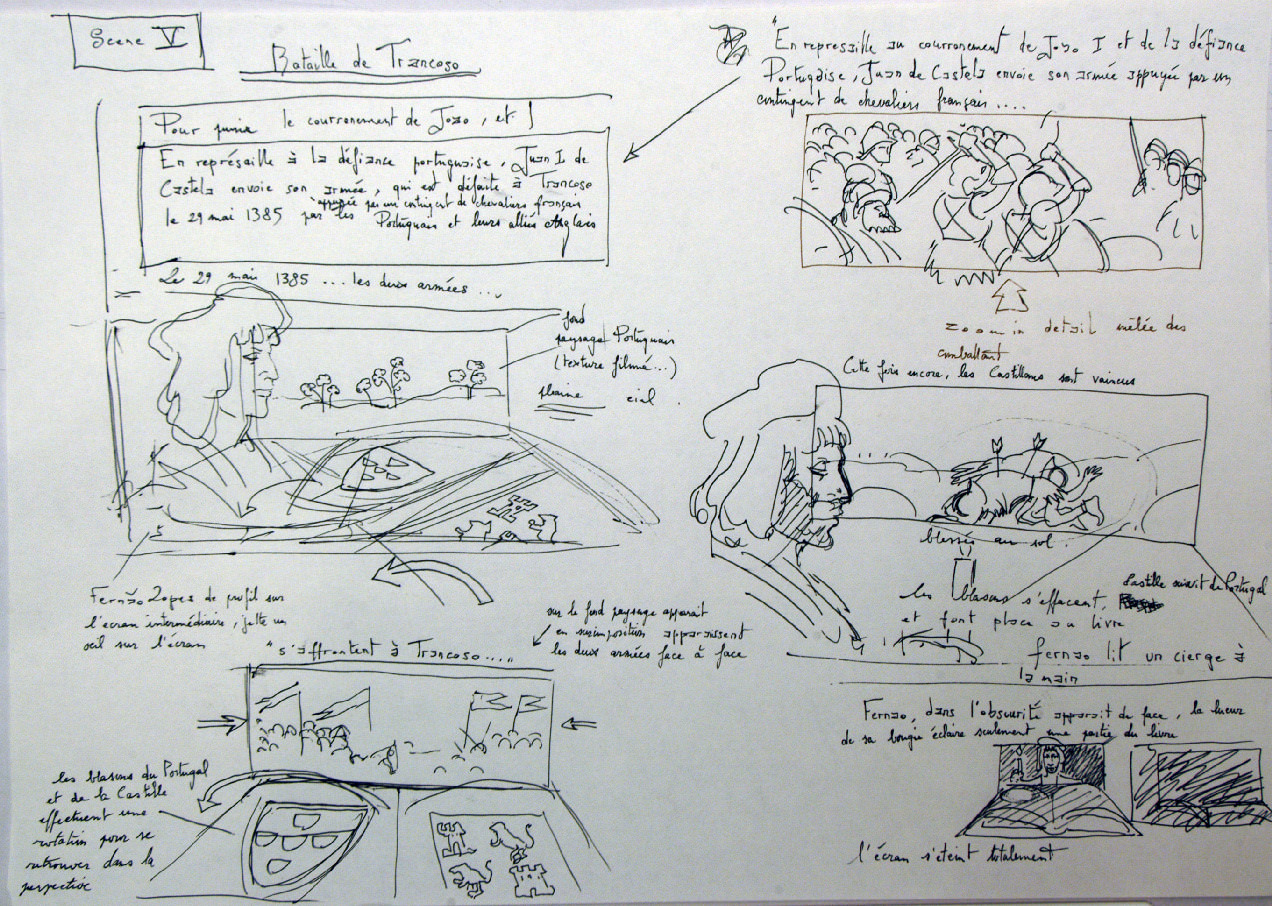 Scene V
Bataille de Trancoso
Pour punir le couronnement de Joao, et
En représaille à la défiance portuguaise, Juan I de
Castela envoie son armée, qui est défaite à Trancoso
appuyée par un contingent de chevaliers français
le 29 mai 1385 par les Portuguais et leurs alliés Anglais
Le 29 mai 1385 ... les deux armées ...
fond
paysage Portuguais
(texture filmée...)
plaine ciel.
Fernão Lopes de profil sur
l'écran intermédiaire, jette un
oeil sur l'écran
"s'affrontent à Trancoso....."
sur le fond paysage apparait
en surimposition apparaissent
les deux armées face à face
les blasons du Portugal
et de la Castille
effectuent une
rotation pour se
retrouver dans la
perspective
"En represaille au couronnement de Joao I et de la défiance
Portugaise, Juan de Castela envoie son armée appuyée par un
contingent de chevaliers français....
zoom in detail mêlée des
combattant
Cette fois encore, les Castillans sont vaincus
blessés au sol.
les blasons s'effacent, Castille suivit de Portugal
et font place au livre
fernao lit un cierge à
la main
Fernao, dans l'obscurité apparait de face, la lueur
de sa bougie éclaire seulement une partie du livre
l'écran s'éteint totalement